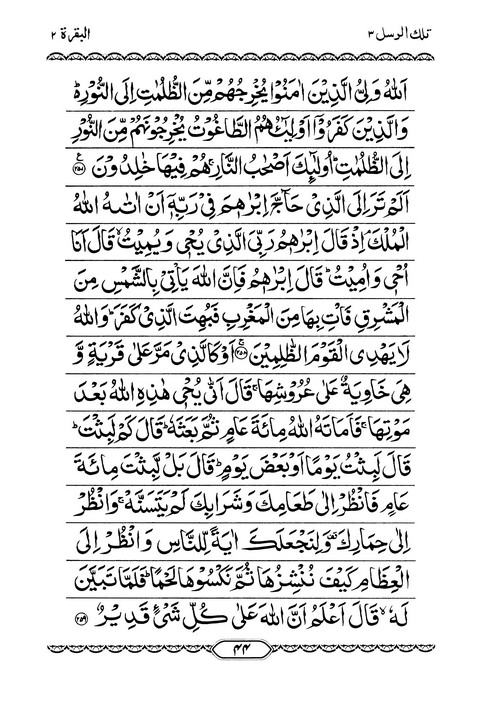 تلك الرسل ٣
البقرة ٢
اَللّٰهُ وَلِیُّ الَّذِیْنَ اٰمَنُوْا یُخْرِجُهُمْ مِّنَ الظُّلُمٰتِ اِلَی النُّوْرِ۬ؕ
وَالَّذِیْنَ كَفَرُوْۤا اَوْلِیٰٓـُٔهُمُ الطَّاغُوْتُ یُخْرِجُوْنَهُمْ مِّنَ النُّوْرِ
اِلَی الظُّلُمٰتِ ؕ اُولٰٓىِٕكَ اَصْحٰبُ النَّارِ ۚ هُمْ فِیْهَا خٰلِدُوْنَ ﴿۲۵۷﴾
اَلَمْ تَرَ اِلَی الَّذِیْ حَآجَّ اِبْرٰهٖمَ فِیْ رَبِّهٖۤ اَنْ اٰتٰىهُ اللّٰهُ
الْمُلْكَ ۘ اِذْ قَالَ اِبْرٰهٖمُ رَبِّیَ الَّذِیْ یُحْیٖ وَیُمِیْتُ ۙ قَالَ اَنَا
اُحْیٖ وَاُمِیْتُ ؕ قَالَ اِبْرٰهٖمُ فَاِنَّ اللّٰهَ یَاْتِیْ بِالشَّمْسِ مِنَ
الْمَشْرِقِ فَاْتِ بِهَا مِنَ الْمَغْرِبِ فَبُهِتَ الَّذِیْ كَفَرَ ؕ وَاللّٰهُ
لَا یَهْدِی الْقَوْمَ الظّٰلِمِیْنَ ﴿۲۵۸﴾ۚ اَوْ كَالَّذِیْ مَرَّ عَلٰی قَرْیَةٍ وَّ
هِیَ خَاوِیَةٌ عَلٰی عُرُوْشِهَا ۚ قَالَ اَنّٰی یُحْیٖ هٰذِهِ اللّٰهُ بَعْدَ
مَوْتِهَا ۚ فَاَمَاتَهُ اللّٰهُ مِائَةَ عَامٍ ثُمَّ بَعَثَهٗ ؕ قَالَ كَمْ لَبِثْتَ ؕ
قَالَ لَبِثْتُ یَوْمًا اَوْ بَعْضَ یَوْمٍ ؕ قَالَ بَلْ لَّبِثْتَ مِائَةَ
عَامٍ فَانْظُرْ اِلٰی طَعَامِكَ وَشَرَابِكَ لَمْ یَتَسَنَّهْ ۚ وَانْظُرْ
اِلٰی حِمَارِكَ ۫ وَلِنَجْعَلَكَ اٰیَةً لِّلنَّاسِ وَانْظُرْ اِلَی
الْعِظَامِ كَیْفَ نُنْشِزُهَا ثُمَّ نَكْسُوْهَا لَحْمًا ؕ فَلَمَّا تَبَیَّنَ
لَهٗ ۙ قَالَ اَعْلَمُ اَنَّ اللّٰهَ عَلٰی كُلِّ شَیْءٍ قَدِیْرٌ ﴿۲۵۹﴾
۴۴